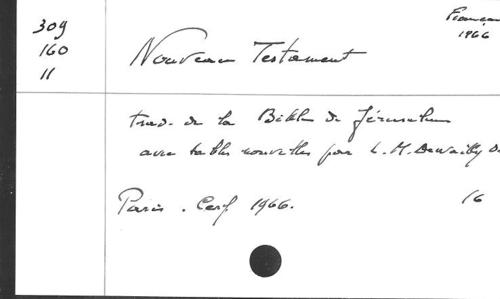 309
160
11
Français
1966
Nouveau Testament
trad. de la Bible de Jérusalem
avec tables nouvelles par L. M. Dewailly O.
Paris. Cerf 1966.
16